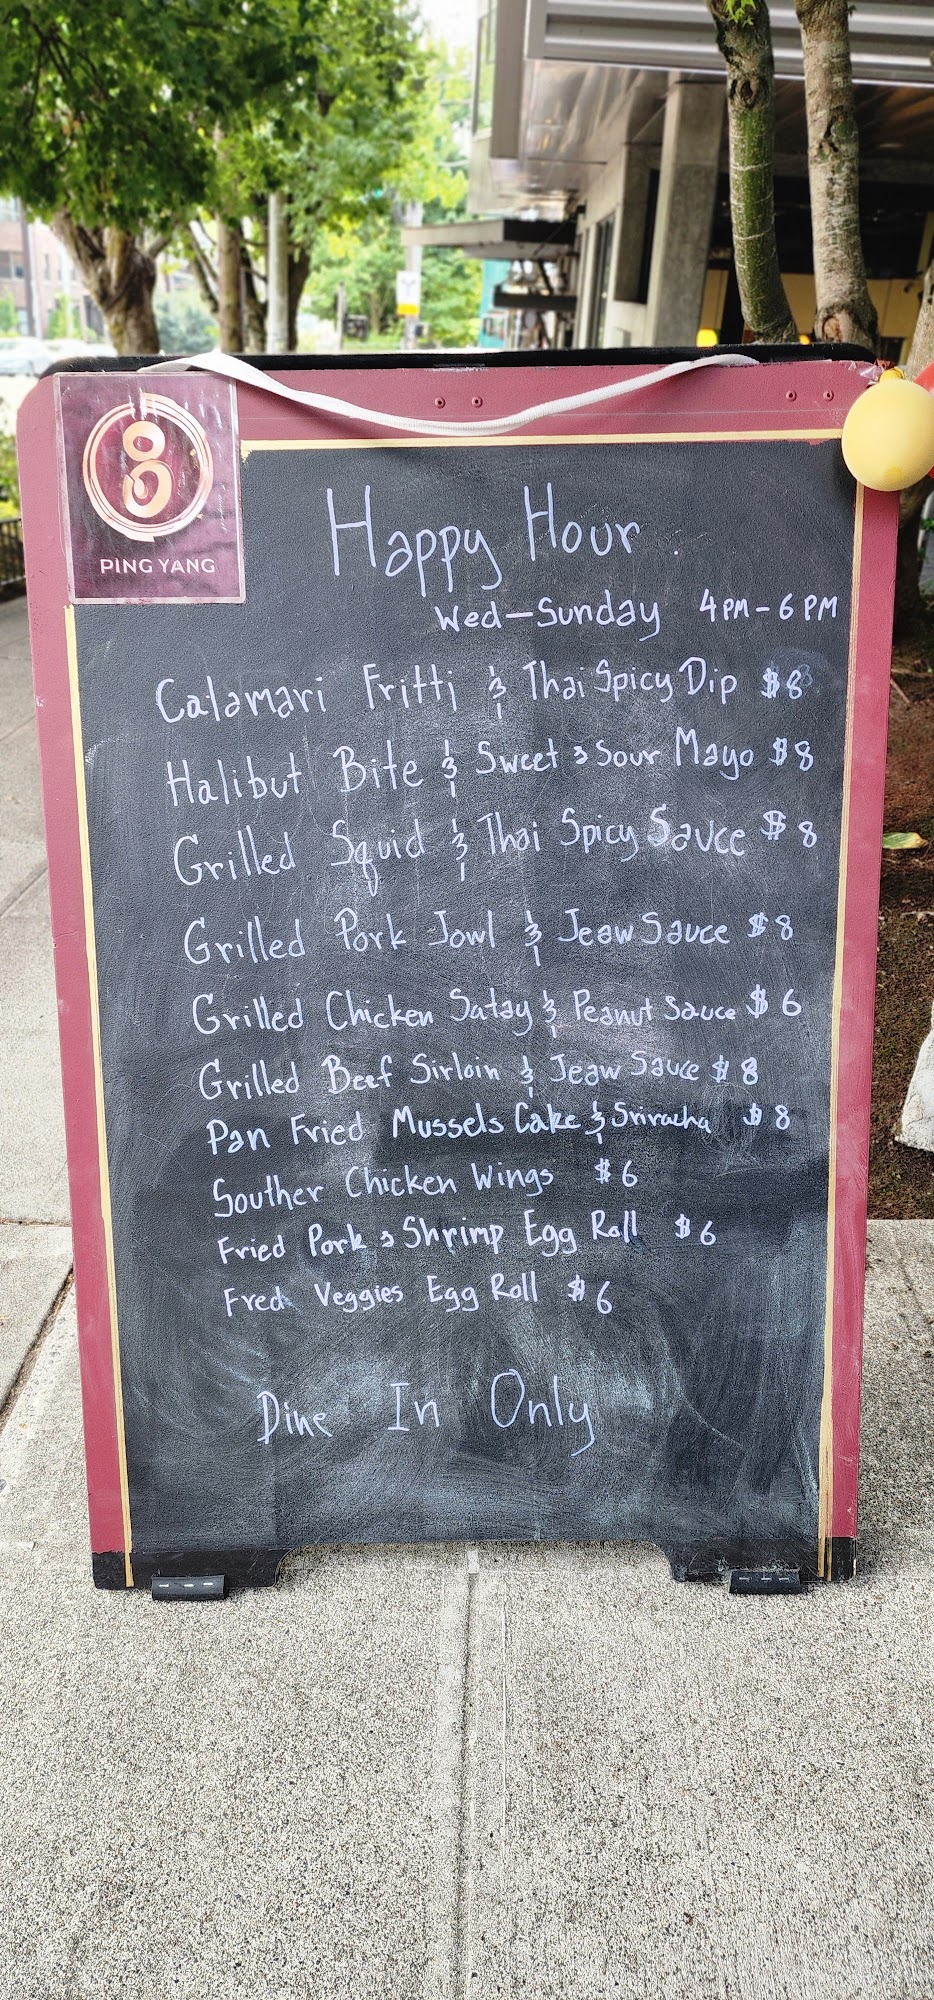 PING YANG
Happy Hour
Wed-Sunday 4PM-6PM
Calamari Fritti & Thai Spicy Dip $8
Halibut Bite & Sweet & Sour Mayo $8
Grilled Squid & Thai Spicy Sauce $8
Grilled Pork Jowl & Jeaw Sauce $8
Grilled Chicken Satay & Peanut Sauce $6
Grilled Beef Sirloin & Jeaw Sauce $8
Pan Fried Mussels Cake & Sriracha $8
Souther Chicken Wings $6
Fried Pork & Shrimp Egg Roll $6
Fred Veggies Egg Roll $6
Dine In Only